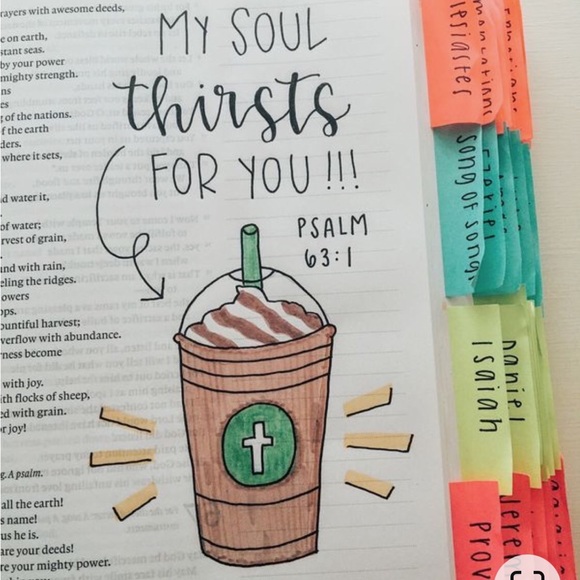 rayers with awesome deeds,
e on earth,
stant seas.
by your power
mighty strength.
ns
es
g of the nations.
f the earth
ders.
where it sets,
d water it,
.
of water;
rvest of grain,
.
and with rain,
eling the ridges.
owers
ops.
ountiful harvest;
verflow with abundance.
rness become
with joy.
ith flocks of sheep,
ed with grain.
r joy!
g. A psalm.
all the earth!
s name!
us he is.
are your deeds!
re your mighty power.
MY SOUL
thirsts
FOR YOU!!!
PSALM
63:1
song of song
Ezekiel
Daniel
Isaiah
Jerem
Prov